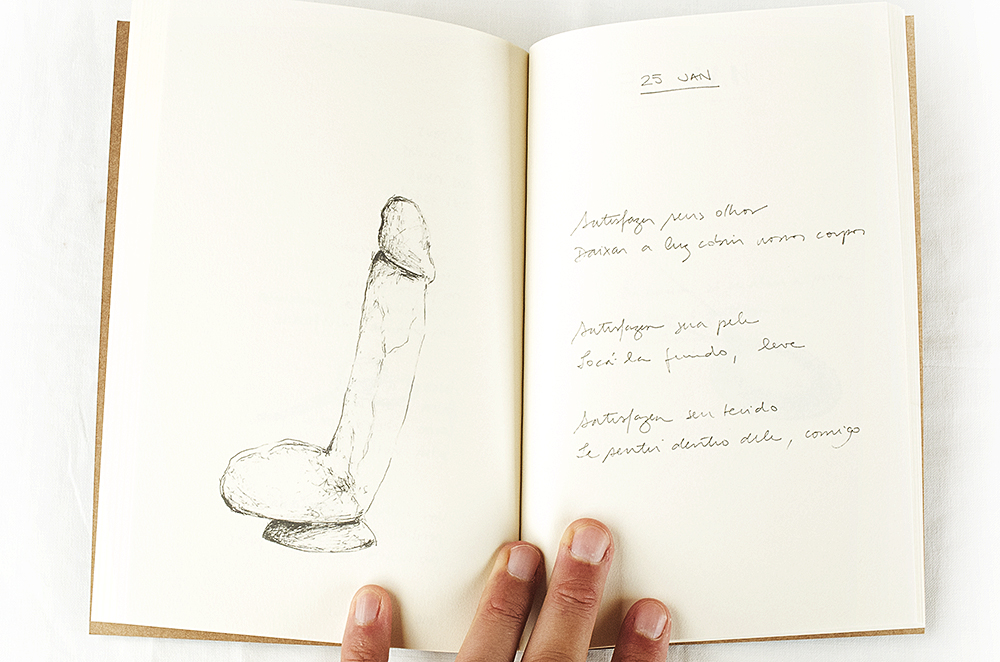 25 JAN
Satisfazer seus olhos
Deixar a luz cobrir nossos corpos
Satisfazer sua pele
Tocá-la fundo, leve
Satisfazer seu tecido
Te sentir dentro dele, comigo